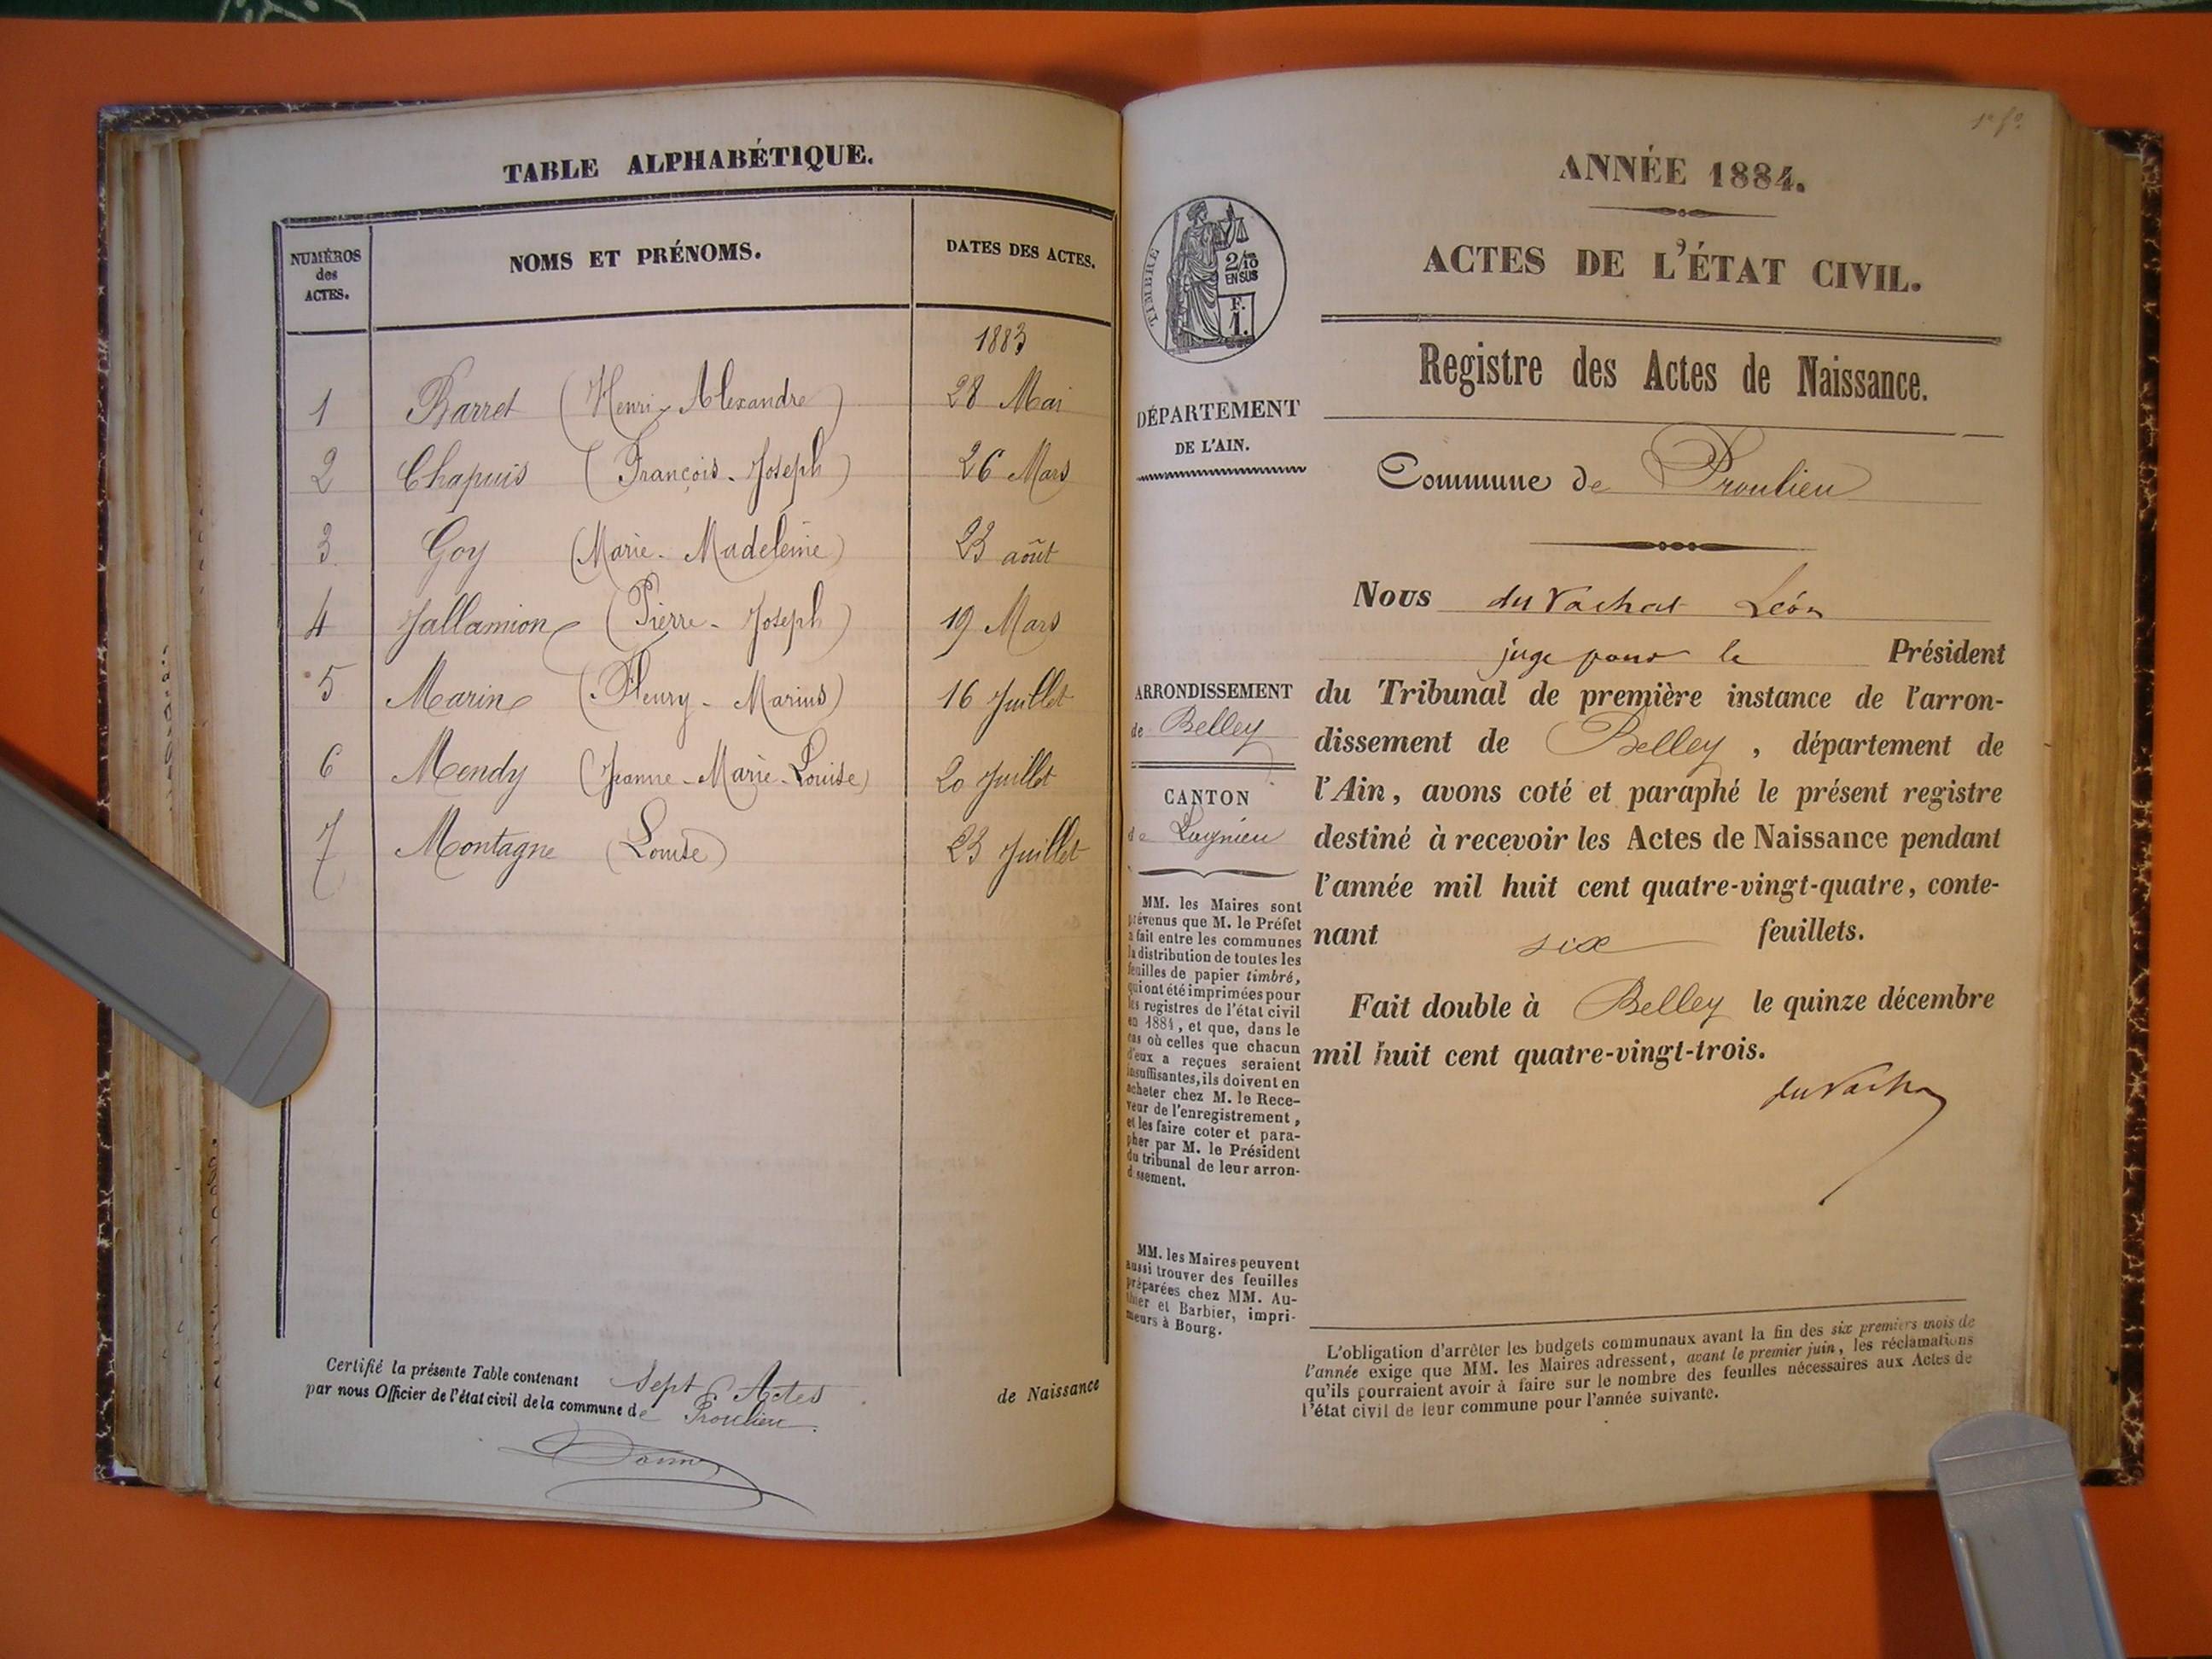 TABLE ALPHABÉTIQUE.
NUMÉROS des ACTES. NOMS ET PRÉNOMS. DATES DES ACTES.
1883
1 Barret (Henri-Alexandre) 28 Mai
2 Chapuis (François-Joseph) 26 Mars
3 Goy (Marie-Madeleine) 23 août
4 Jallamion (Pierre-Joseph) 19 Mars
5 Marin (Fleury-Marius) 16 Juillet
6 Mendy (Jeanne-Marie-Louise) 20 Juillet
7 Montagne (Louise) 23 Juillet
Certifié la présente Table contenant Sept Actes de Naissance
par nous Officier de l'état civil de la commune de Proulieu.
1er fo
ANNÉE 1884.
ACTES DE L'ÉTAT CIVIL.
TIMBRE
2/10
EN SUS
F.
1.
Registre des Actes de Naissance.
DÉPARTEMENT
DE L'AIN.
Commune de Proulieu
Nous du Vachat Léon
juge pour le Président
ARRONDISSEMENT
de Belley
CANTON
de Lagnieu
du Tribunal de première instance de l'arron-
dissement de Belley, département de
l'Ain, avons coté et paraphé le présent registre
destiné à recevoir les Actes de Naissance pendant
l'année mil huit cent quatre-vingt-quatre, conte-
nant six feuillets.
Fait double à Belley le quinze décembre
mil huit cent quatre-vingt-trois.
du Vachat
MM. les Maires sont
prévenus que M. le Préfet
a fait entre les communes
la distribution de toutes les
feuilles de papier timbré,
qui ont été imprimées pour
les registres de l'état civil
en 1884, et que, dans le
cas où celles que chacun
d'eux a reçues seraient
insuffisantes, ils doivent en
acheter chez M. le Rece-
veur de l'enregistrement,
et les faire coter et para-
pher par M. le Président
du tribunal de leur arron-
dissement.
MM. les Maires peuvent
aussi trouver des feuilles
préparées chez MM. Au-
thier et Barbier, impri-
meurs à Bourg.
L'obligation d'arrêter les budgets communaux avant la fin des six premiers mois de
l'année exige que MM. les Maires adressent, avant le premier juin, les réclamations
qu'ils pourraient avoir à faire sur le nombre des feuilles nécessaires aux Actes de
l'état civil de leur commune pour l'année suivante.